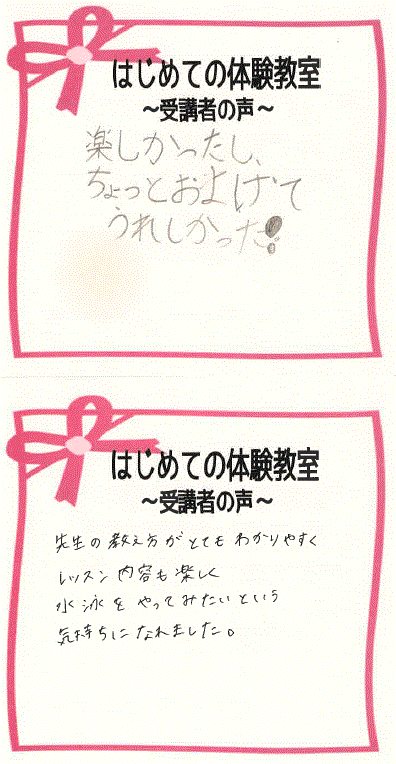 はじめての体験教室
~受講者の声~
楽しかったし、
ちょっとおよげて
うれしかった!
はじめての体験教室
~受講者の声~
先生の教え方がとてもわかりやすく
レッスン内容も楽しく
水泳をやってみたいという
気持ちになれました。